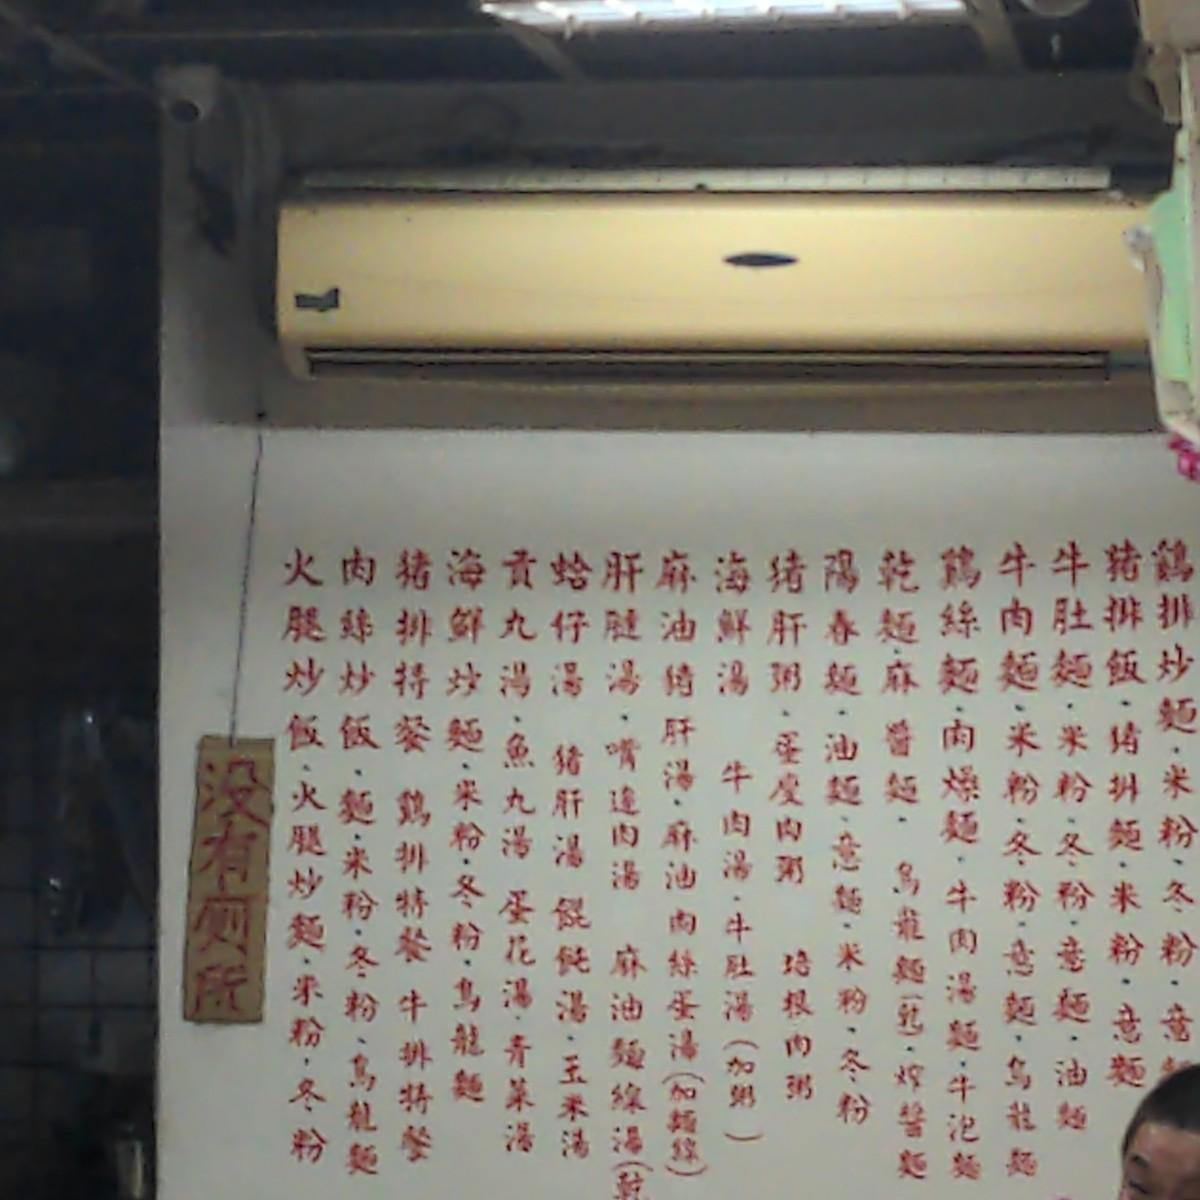 鷄排炒麵·米粉·冬粉·意麵
豬排飯·豬排麵·米粉·意麵
牛肚麵·米粉·冬粉·意麵·油麵
牛肉麵·米粉·冬粉·意麵·烏龍麵
鷄絲麵·肉燥麵·牛肉湯麵·牛泡麵
乾麵·麻醬麵·烏龍麵(乾·炸醬麵
陽春麵·油麵·意麵·米粉·冬粉
猪肝粥·蛋皮肉粥 培根肉粥
海鮮湯 牛肉湯·牛肚湯(加粥)
麻油猪肝湯·麻油肉絲蛋湯(加麵線)
肝腱湯·嘴邊肉湯 麻油麵線湯(乾
蛤仔湯 猪肝湯 餛飩湯·玉米湯
貢丸湯·魚丸湯 蛋花湯 青菜湯
海鮮炒麵·米粉·冬粉·烏龍麵
猪排特餐 鷄排特餐 牛排特餐
肉絲炒飯·麵·米粉·冬粉·烏龍麵
火腿炒飯·火腿炒麵·米粉·冬粉
没有厠所